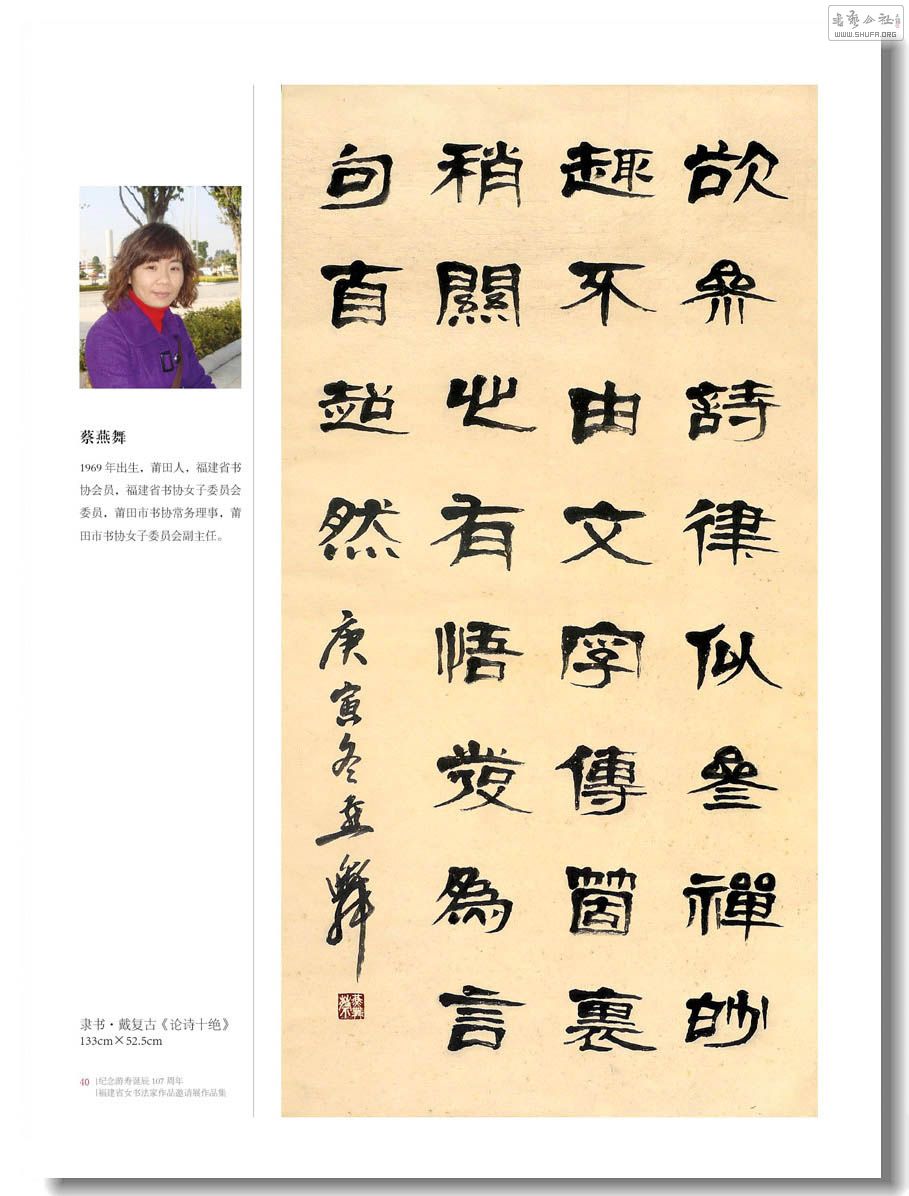 書藝公社
WWW.SHUFA.ORG
欲參詩律似參禪妙
趣不由文字傳箇裏
稍關心有悟發為言
句直超然
庚寅冬燕舞
蔡燕舞
1969 年出生，莆田人，福建省书
协会员，福建省书协女子委员会
委员，莆田市书协常务理事，莆
田市书协女子委员会副主任。
隶书·戴复古《论诗十绝》
133cm×52.5cm
40
纪念游寿诞辰 107 周年
福建省女书法家作品邀请展作品集